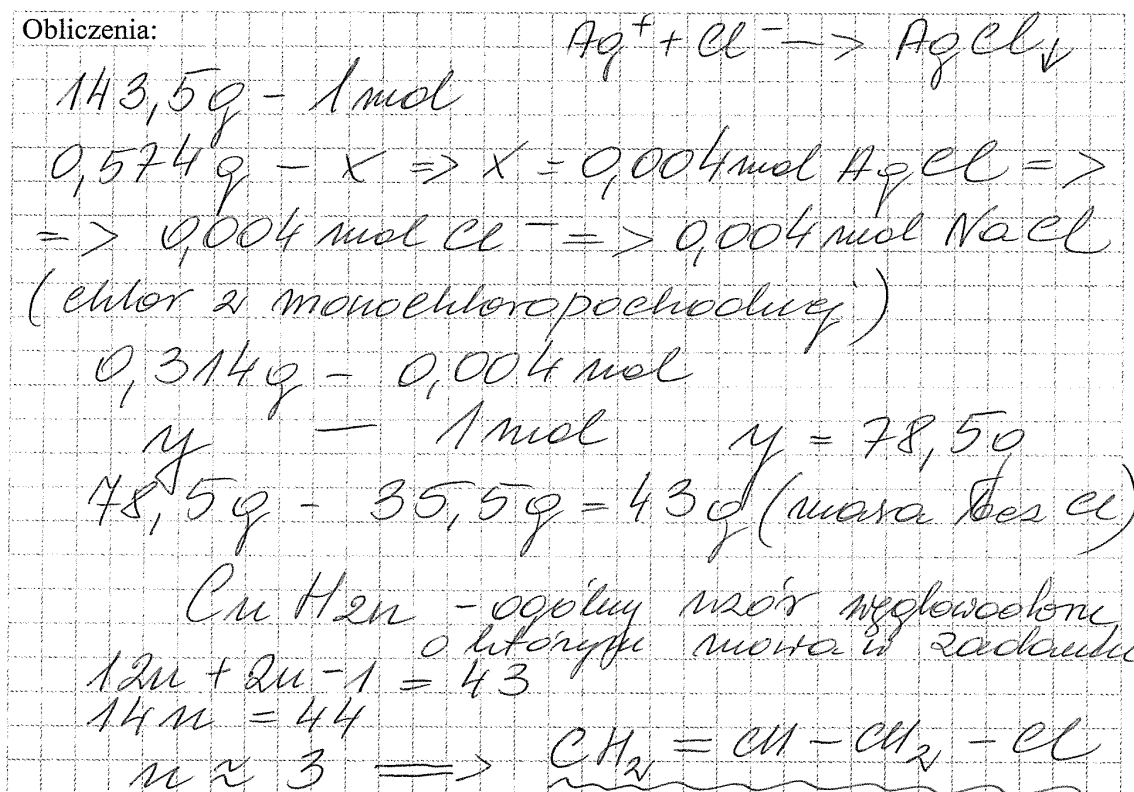 Obliczenia: Ag⁺ + Cl⁻ —> AgCl↓
143,5g - 1 mol
0,574g - X => X = 0,004 mol AgCl =>
=> 0,004 mol Cl⁻ => 0,004 mol NaCl
(chlor z monochloropochodnej)
0,314g - 0,004 mol
y — 1 mol y = 78,5g
78,5g - 35,5g = 43g (masa bez Cl)
CnH2n - ogólny wzór węglowodoru
o którym mowa w zadaniu
12n + 2n - 1 = 43
14n = 44
n ≈ 3 ==> CH₂ = CH - CH₂ - Cl